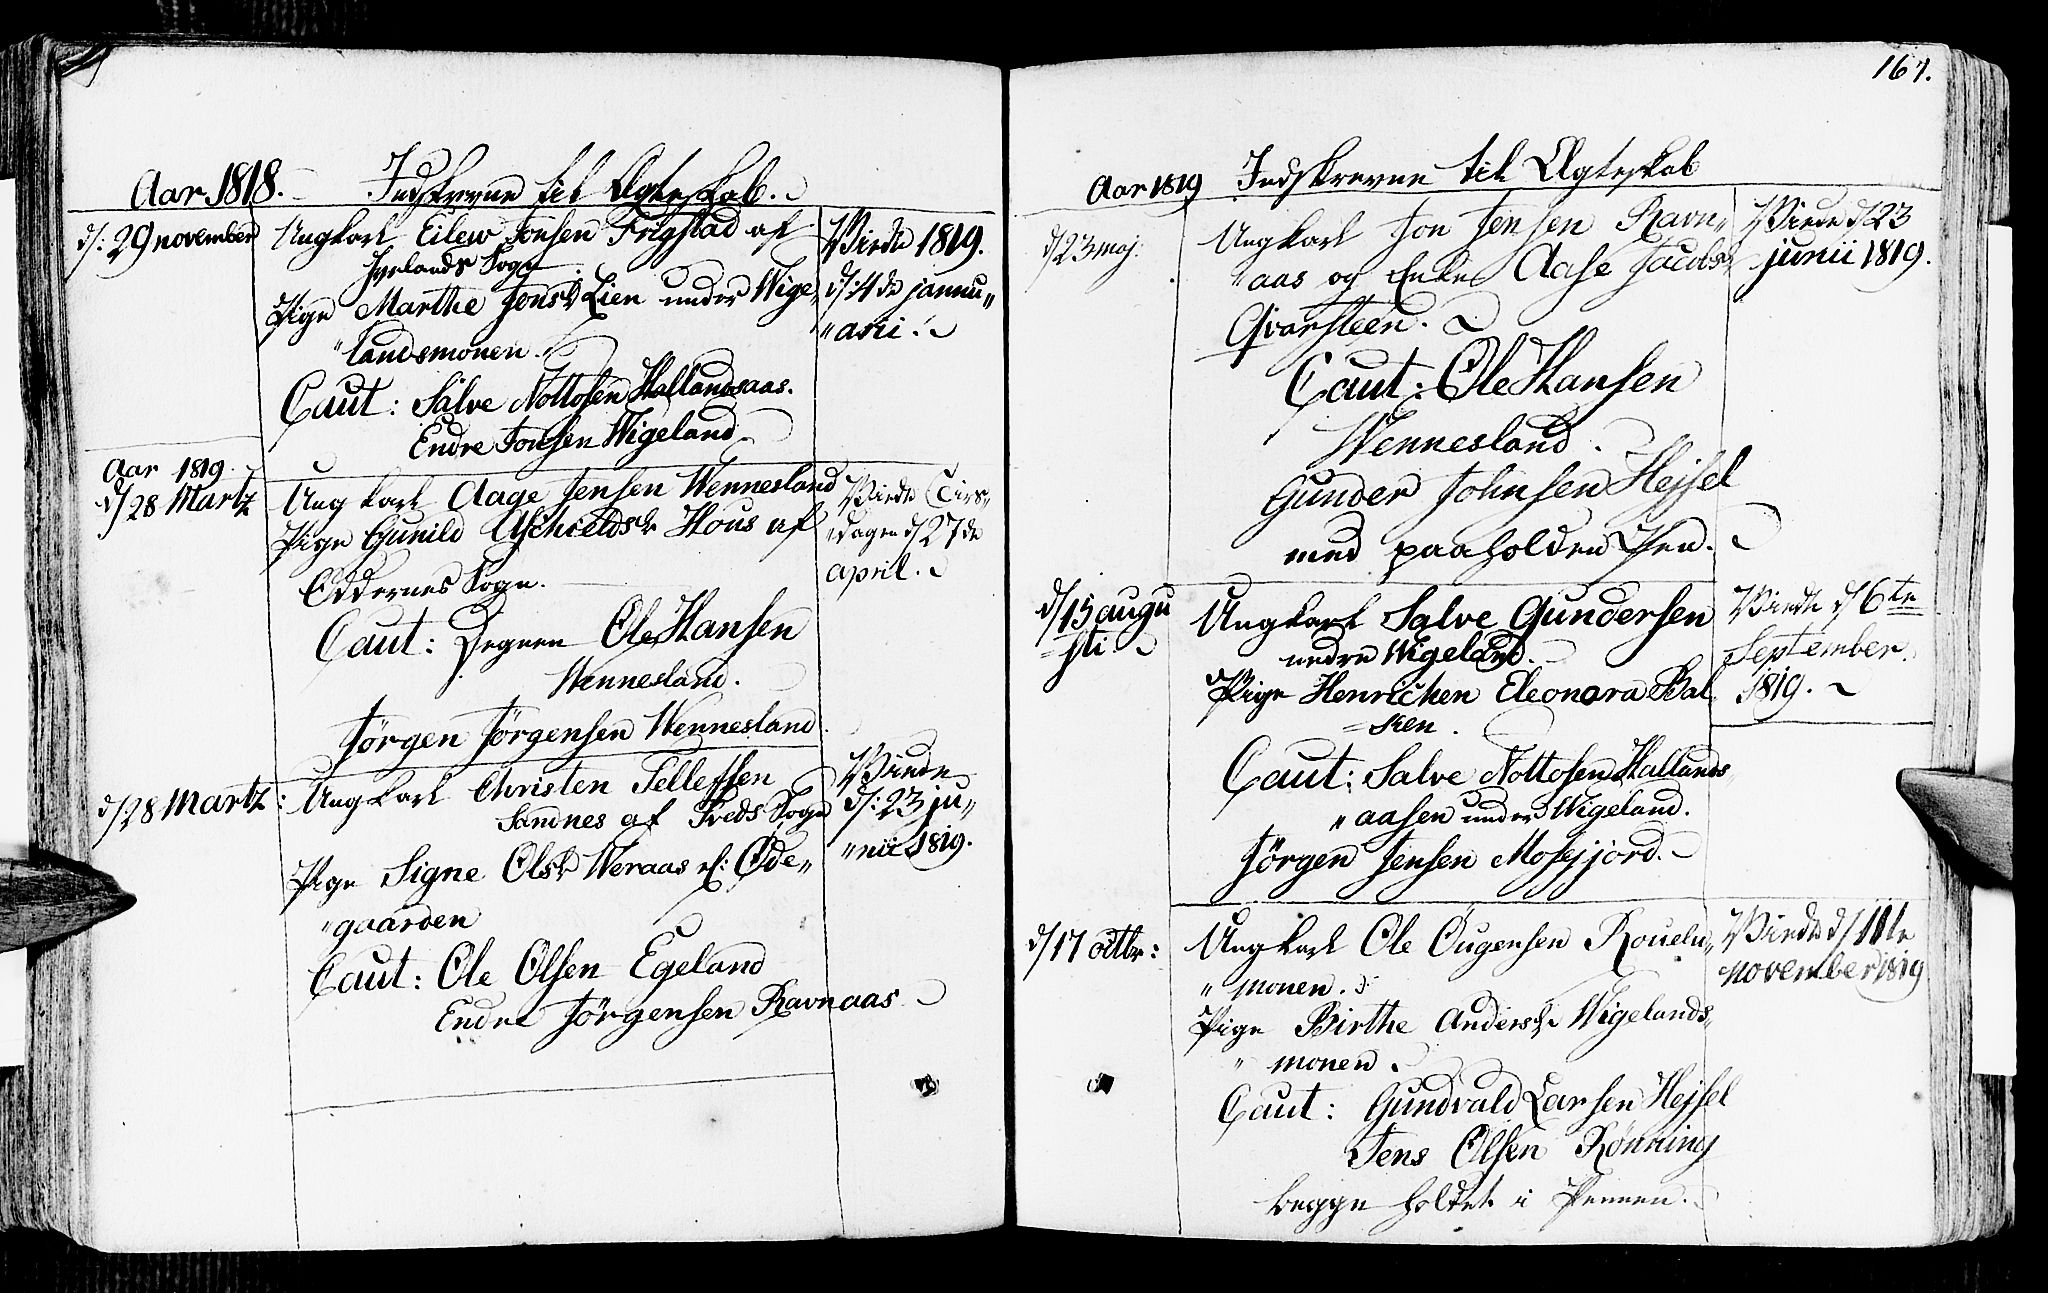 Aar 1818. Indskrevne til Ægteskab.
d/: 29 november
Ungkarl Eilew Jonsen Frigstad af
Iverlands Sogn
Pige Marthe Jonsd. Lien under Wige„
„landsmonen.
Caut: Salve Nottosen Hallandsaas.
Endre Jonsen Wigeland.
Viede 1819.
d/: 14de jannu„
„arii.
Aar 1819.
d/28 Martz
Ungkarl Aage Jensen Wennesland
Pige Gunild Aschieldsd. Hous af
Oddernes Sogn.
Caut: Degnen Ole Hansen
Wennesland.
Jørgen Jørgensen Wennesland.
Viede Tirs„
„dagen d/27de
april.
d/28 Martz:
Ungkarl Christen Tellefsen
Sandnes af Treds Sogn
Pige Signe Olsd. Weraas el: Øde„
„gaarden
Caut: Ole Olsen Egeland
Endre Jørgensen Ravnaas
Viede
d/: 23 ju„
„nii 1819.
167.
Aar 1819 Indskrevne til Ægteskab
d/23 maj:
Ungkarl Jon Jensen Ravn„
„aas og Enke Aase Jacobs„
Qvarsteen.
Caut: Ole Hansen
Wennesland.
Gunder Johnsen Hejsel
med paaholden Pen.
Viede d/23
junii 1819.
d/15 augu
=sti
Ungkarl Salve Gundersen
nedre Wigeland.
Pige Henrichen Eleonora Bal
=ken.
Caut: Salve Nottosen Hallands„
„aasen under Wigeland.
Jørgen Jensen Mosejord.
Viede d/6te
September.
1819.
d/17 octbr:
Ungkarl Ole Ougensen Roueln„
„monen.
Pige Birthe Andersd. Wigelands„
„monen.
Caut: Gundvald Larsen Hejsel
Jens Olsen Rønning
begge holdet i Pennen.
Viede d/11te
november 1819